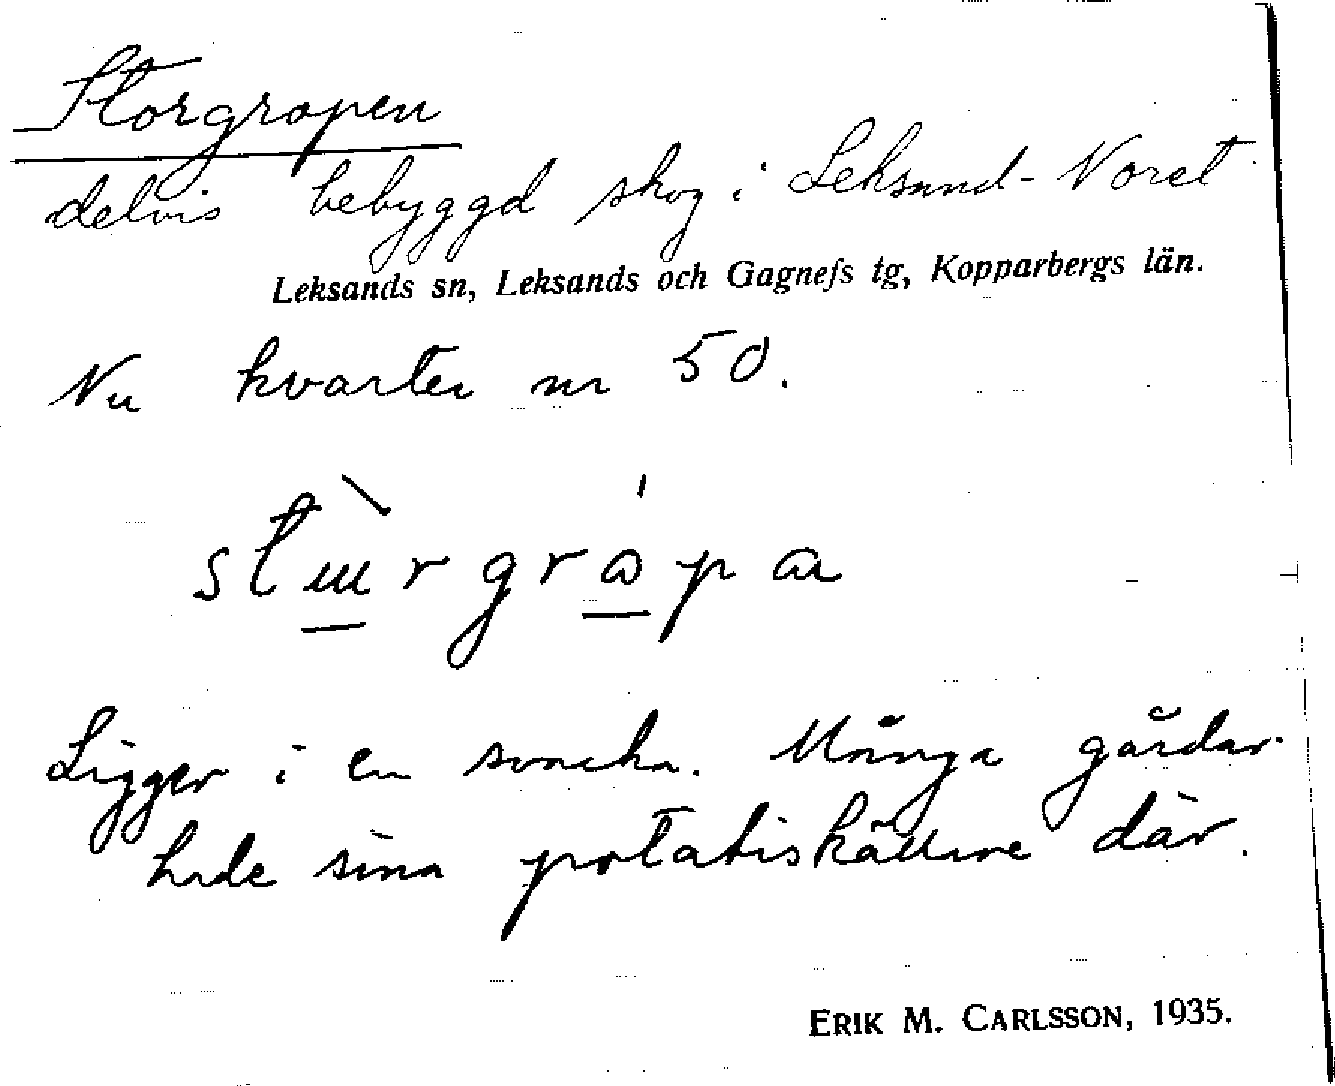 Storgropen
delvis bebyggd skog i Leksand-Noret
Leksands sn, Leksands och Gagnefs tg, Kopparbergs län.
Nu kvarter nr 50.
Ligger i en svacka. Många gårdar
hade sina potatiskällare där.
ERIK M. CARLSSON, 1935.